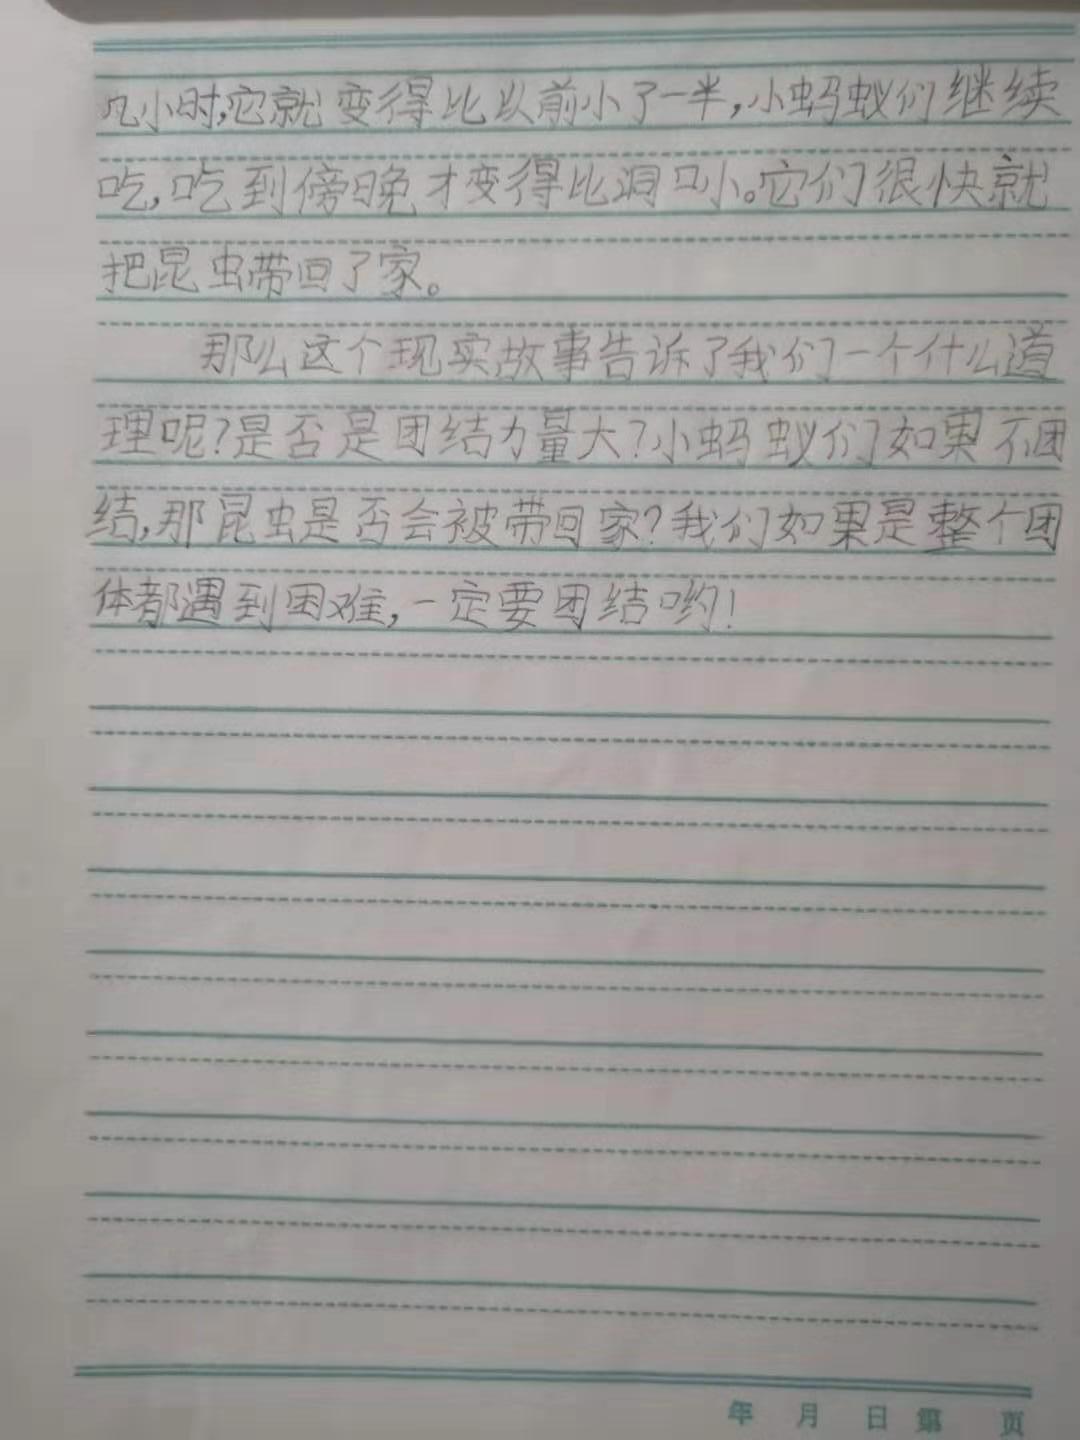 几小时,它就变得比以前小了一半,小蚂蚁们继续
吃,吃到傍晚才变得比洞口小。它们很快就
把昆虫带回了家。
那么这个现实故事告诉了我们一个什么道
理呢?是否是团结力量大?小蚂蚁们如果不团
结,那昆虫是否会被带回家?我们如果是整个团
体都遇到困难,一定要团结哟!
年 月 日 第 页